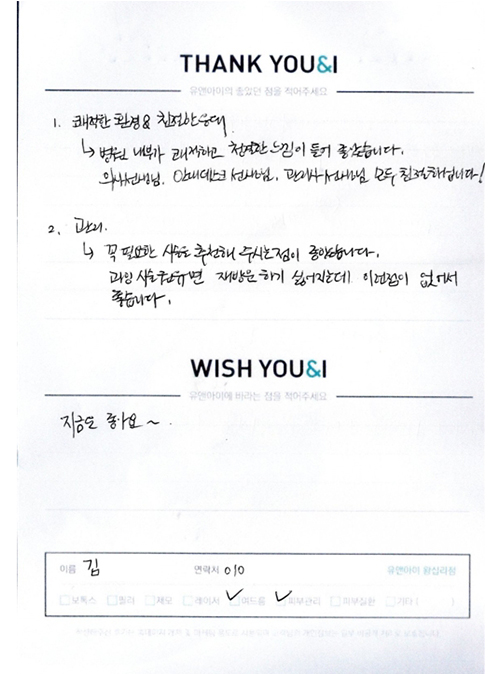 THANK YOU&I
유앤아이의 좋았던 점을 적어주세요
1. 쾌적한 환경 & 친절한 응대.
↳ 병원 내부가 쾌적하고 청결한 느낌이 들어 좋았습니다.
의사선생님, 안내데스크 선생님, 관리사 선생님 모두 친절하십니다!
2. 관리.
↳ 꼭 필요한 시술을 추천해 주시는점이 좋았습니다.
과잉 시술권유면 재방문 하기 싫어지는데 이런점이 없어서
좋습니다.
WISH YOU&I
유앤아이에 바라는 점을 적어주세요
지금도 좋아요 ~.
이름 김 연락처 010 유앤아이 왕십리점
보톡스 필러 제모 레이저 여드름 피부관리 피부질환 기타 ( )